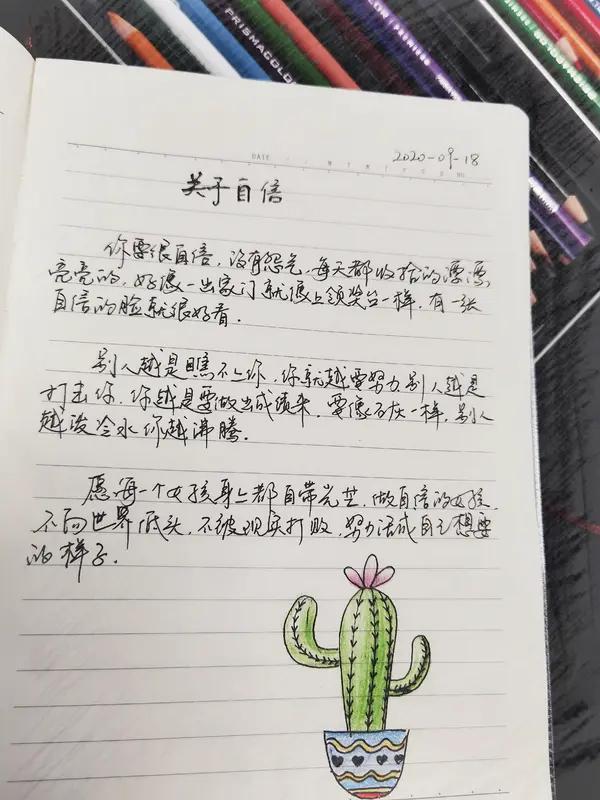 PRISMACOLOR
PREMIER
DATE
2020-09-18
关于自信
你要很自信,没有怨气,每天都收拾的漂漂
亮亮的,好像一出家门就像上领奖台一样,有一张
自信的脸就很好看.
别人越是瞧不上你,你就越要努力别人越是
打击你,你越是要做出成绩来,要像石灰一样,别人
越泼冷水你越沸腾.
愿每一个女孩身上都自带光芒,做自信的女孩,
不向世界低头,不被现实打败,努力活成自己想要
的样子.